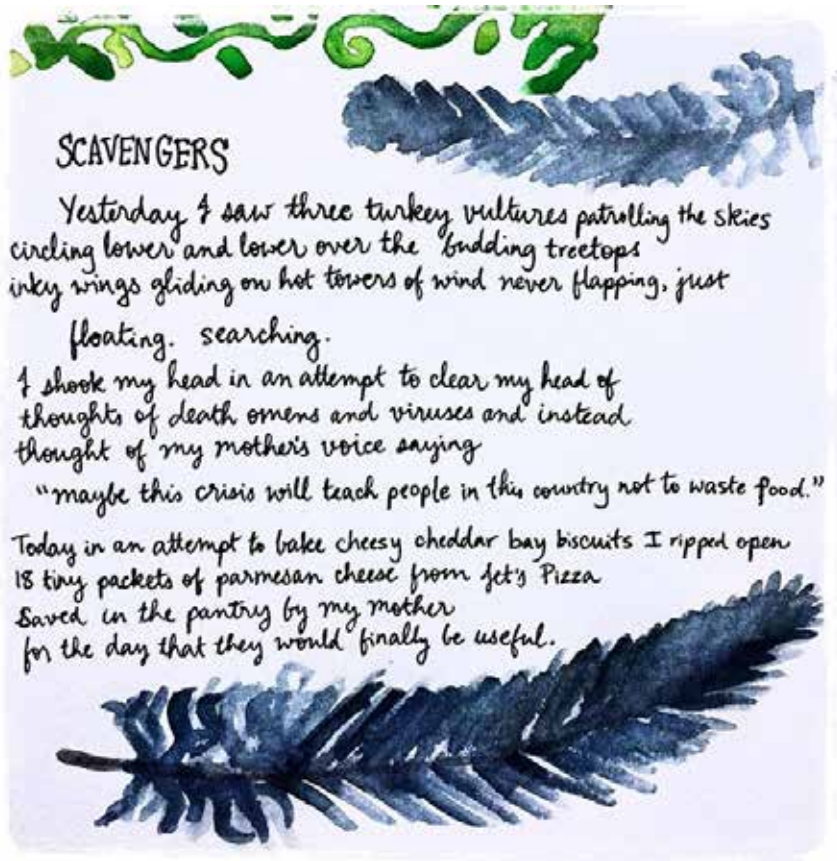 SCAVENGERS
Yesterday I saw three turkey vultures patrolling the skies
circling lower and lower over the budding treetops
inky wings gliding on hot towers of wind never flapping, just
floating. searching.
I shook my head in an attempt to clear my head of
thoughts of death omens and viruses and instead
thought of my mother's voice saying
"maybe this crisis will teach people in this country not to waste food."
Today in an attempt to bake cheesy cheddar bay biscuits I ripped open
18 tiny packets of parmesan cheese from Jet's Pizza
Saved in the pantry by my mother
for the day that they would finally be useful.